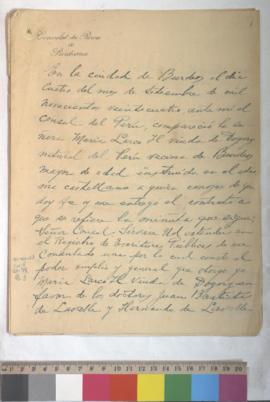 Consulat du Pérou
à
Bordeaux
En la ciudad de Burdeos, el dia
cuatro del mes de Setiembre de mil
novecientos veinticuatro, ante mi el
Consul del Perú, compareció la se
ñora Maria Larco H. viuda de
natural del Perú vecina de Burdeos,
mayor de edad instruida en el idio
ma castellano a quien conozco de que
doy fe y me entregó el contrato a
que se refiere la minuta que sigue:
Señor Consul: Sirvase Ud. extender en
el Registro de Escrituras Públicas de su
Consulado una por la cual conste el
poder amplio y general que otorgo yo
Maria Larco H. Viuda de en
favor de los doctores Juan Bautista
de Lavalle y Hernando de Lavalle